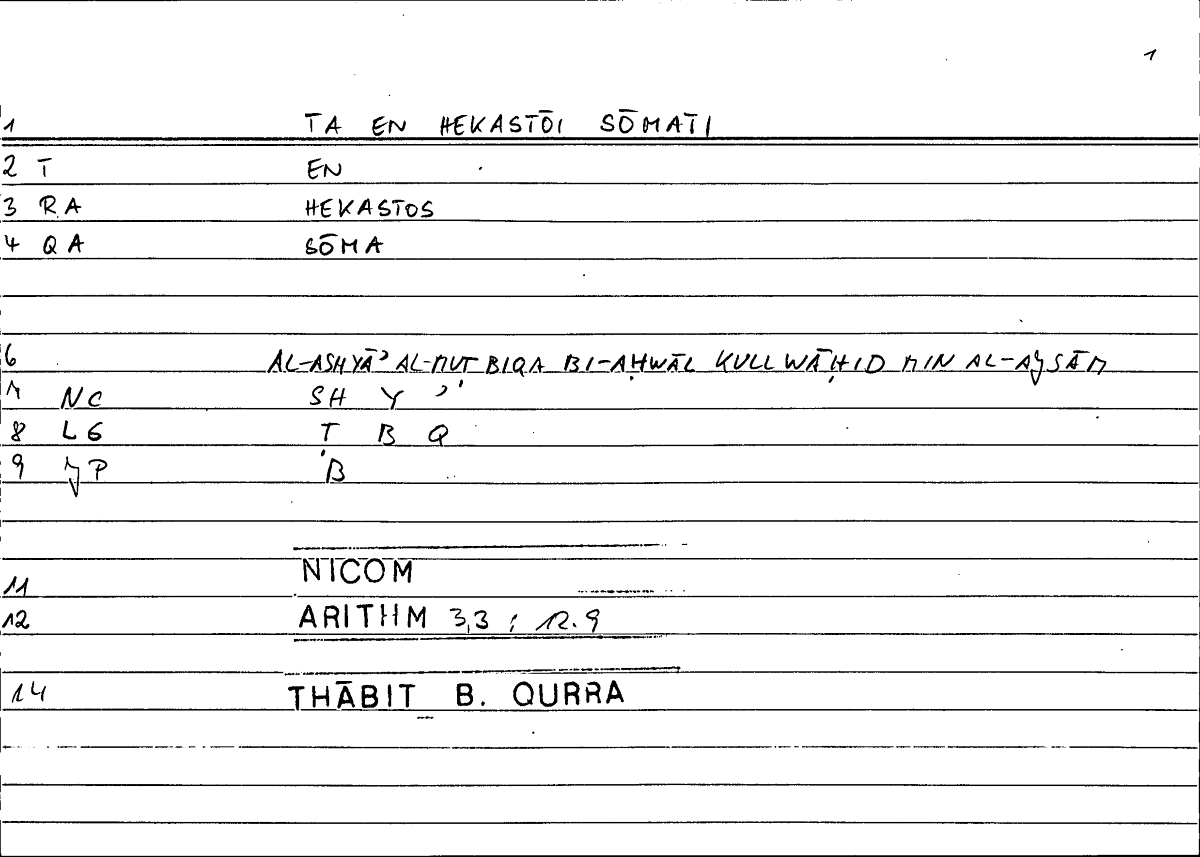 1
1 TA EN HEKASTŌI SŌMATI
2 T EN
3 RA HEKASTOS
4 QA SŌMA
6 AL-ASHYĀʾ AL-MUṬBIQA BI-AḤWĀL KULL WĀḤID MIN AL-AJSĀM
7 NC SH Y ʾ
8 LG Ṭ B Q
9 JP B
11 NICOM
12 ARITHM 3,3 ; 12.9
14 THĀBIT B. QURRA